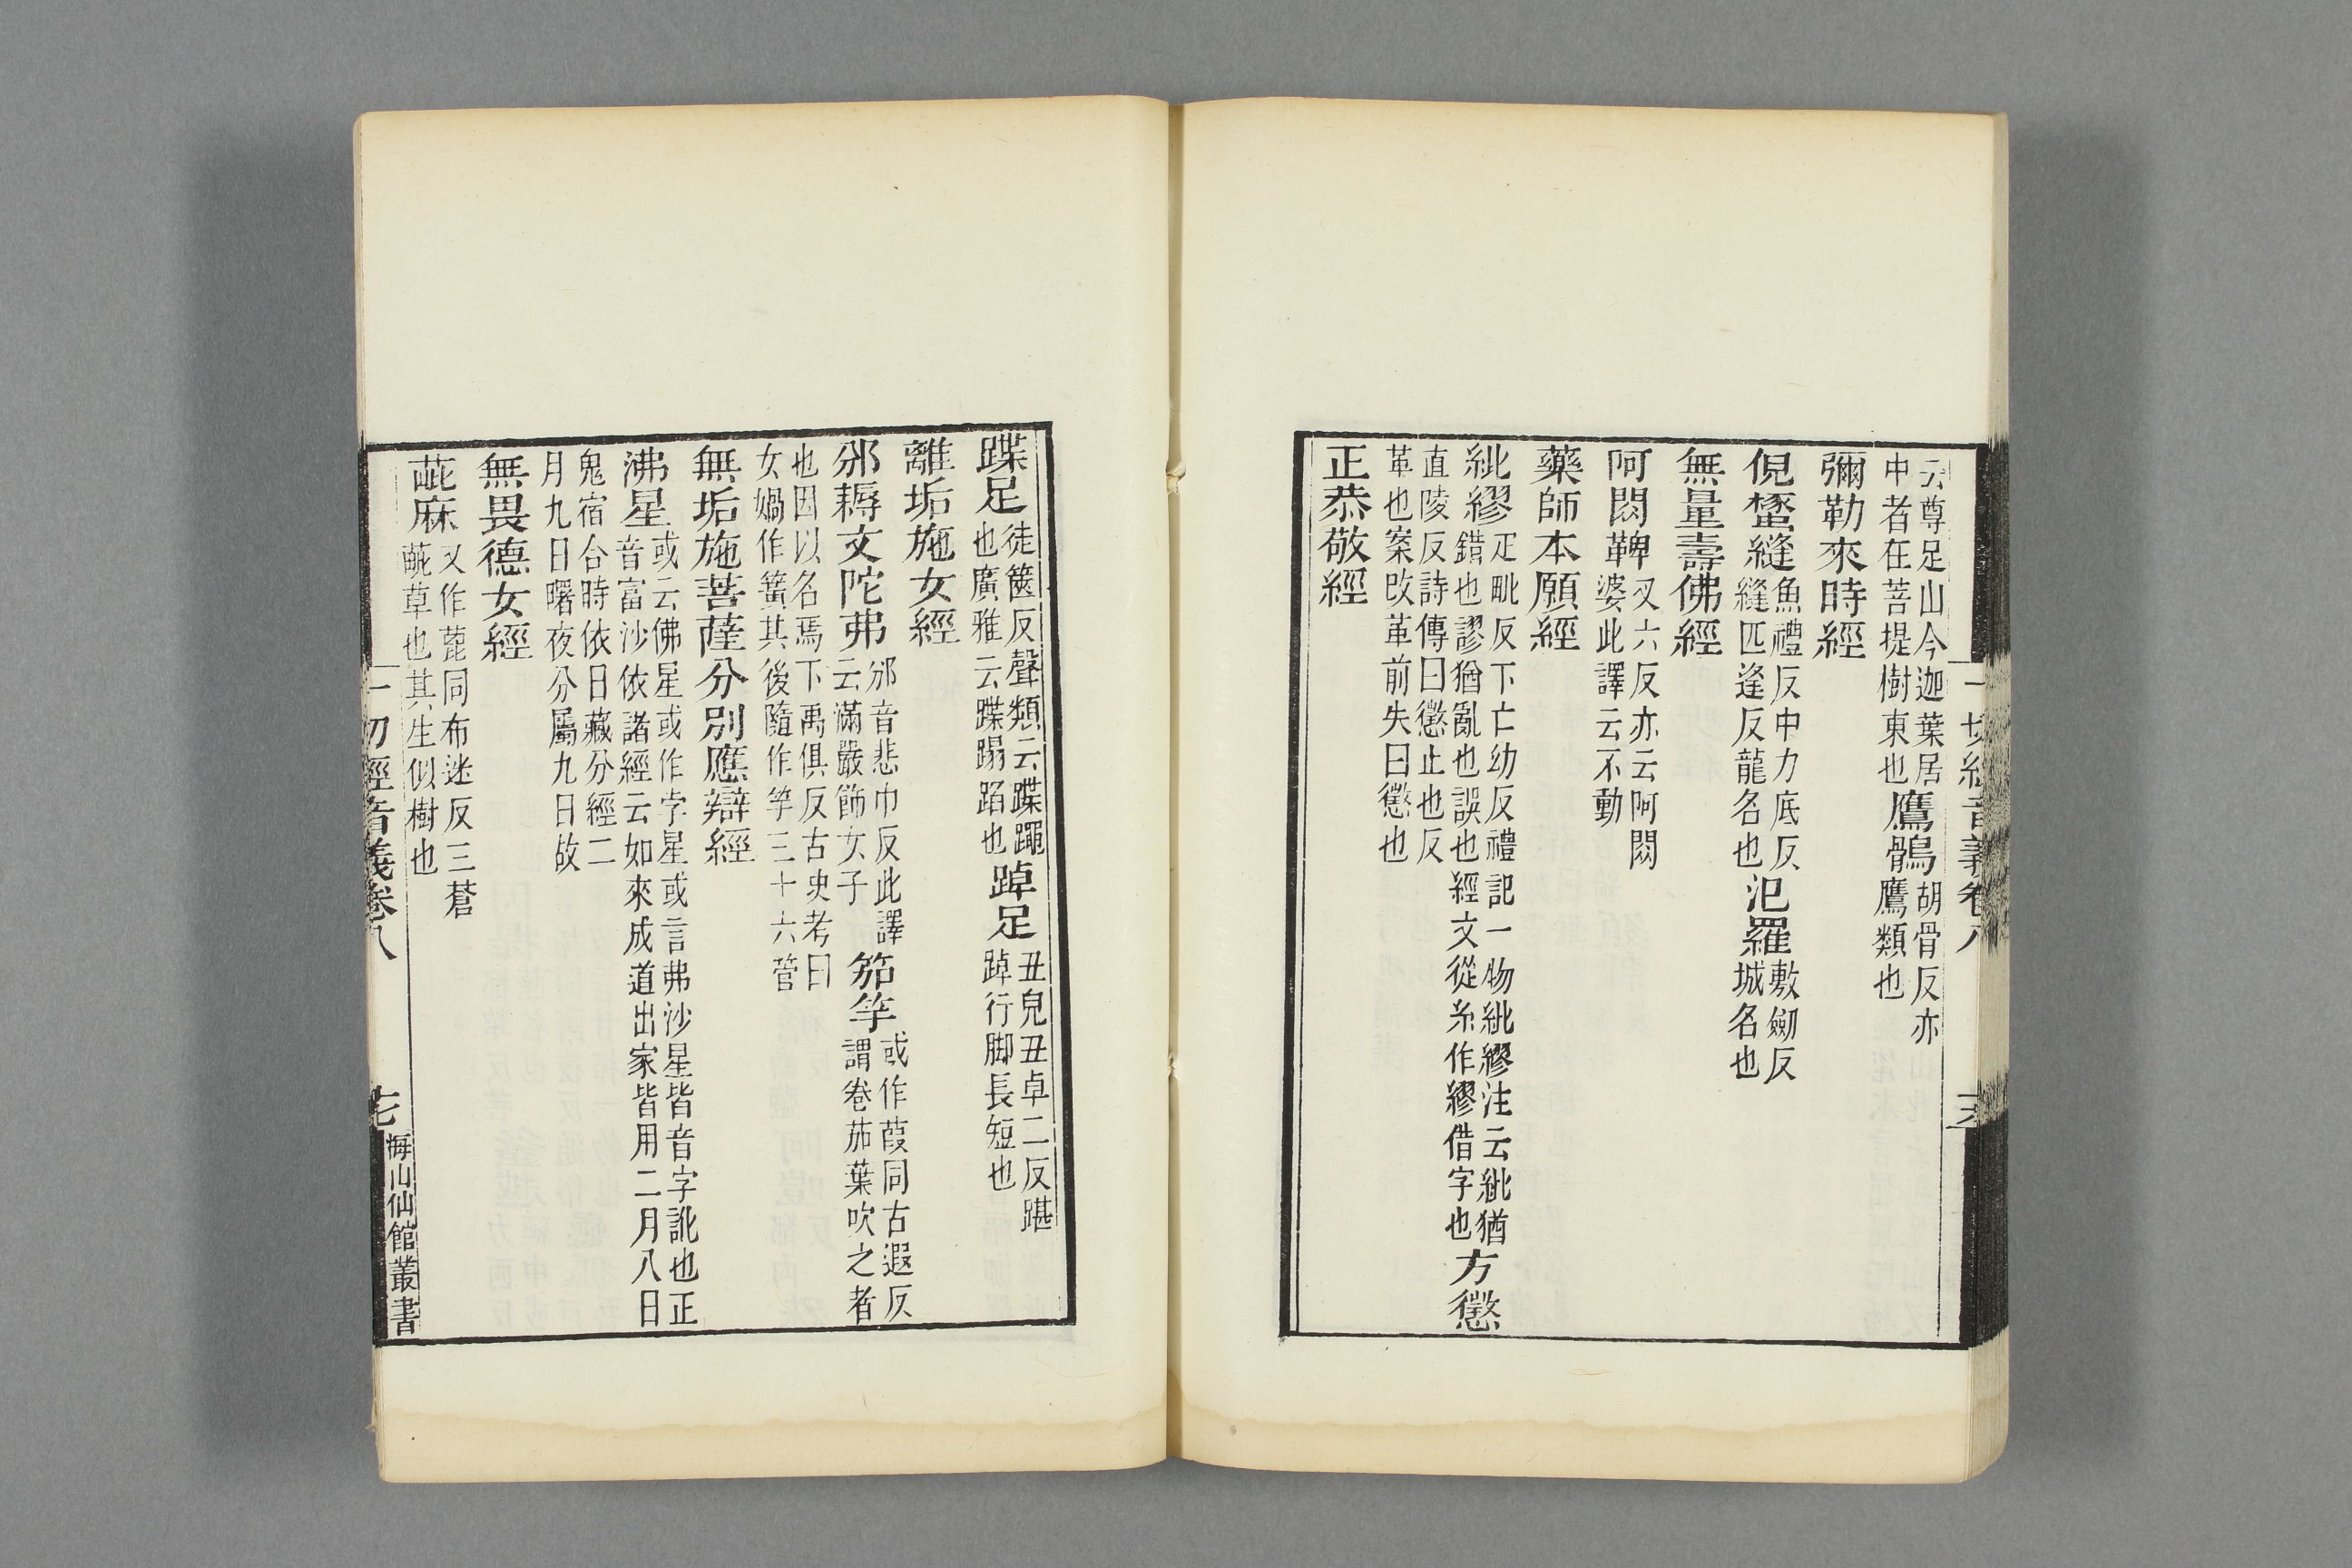 云尊足山今迦葉居
中者在菩提樹東也
鷹鶻
胡骨反亦
鷹類也
彌勒來時經
倪䗍縫
魚禮反中力底反
縫匹逢反龍名也
汜羅
敷劒反
城名也
無量壽佛經
阿閦鞞
叉六反亦云阿閦
婆此譯云不動
藥師本願經
紕繆
疋毗反下亡幼反禮記一物紕繆注云紕猶
錯也謬猶亂也誤也經文從糸作繆借字也
方懲
直陵反詩傳曰懲止也反
革也案改革前失曰懲也
正恭敬經
一切經音義卷八
十六
蹀足
徒篋反聲類云蹀躡
也廣雅云蹀蹋蹈也
踔足
丑皃丑卓二反踸
踔行脚長短也
離垢施女經
邠耨文陀弗
邠音悲巾反此譯
云滿嚴飾女子
笳竿
或作葭同古遐反
謂卷茄葉吹之者
也因以名焉下禹俱反古史考曰
女媧作簧其後隨作竽三十六管
無垢施菩薩分別應辯經
沸星
或云佛星或作孛星或言弗沙星皆音字訛也正
音富沙依諸經云如來成道出家皆用二月八日
鬼宿合時依日藏分經二
月九日曙夜分屬九日故
無畏德女經
萞麻
又作蓖同布迷反三蒼
萞草也其生似樹也
一切經音義卷八
十七
海山仙館叢書